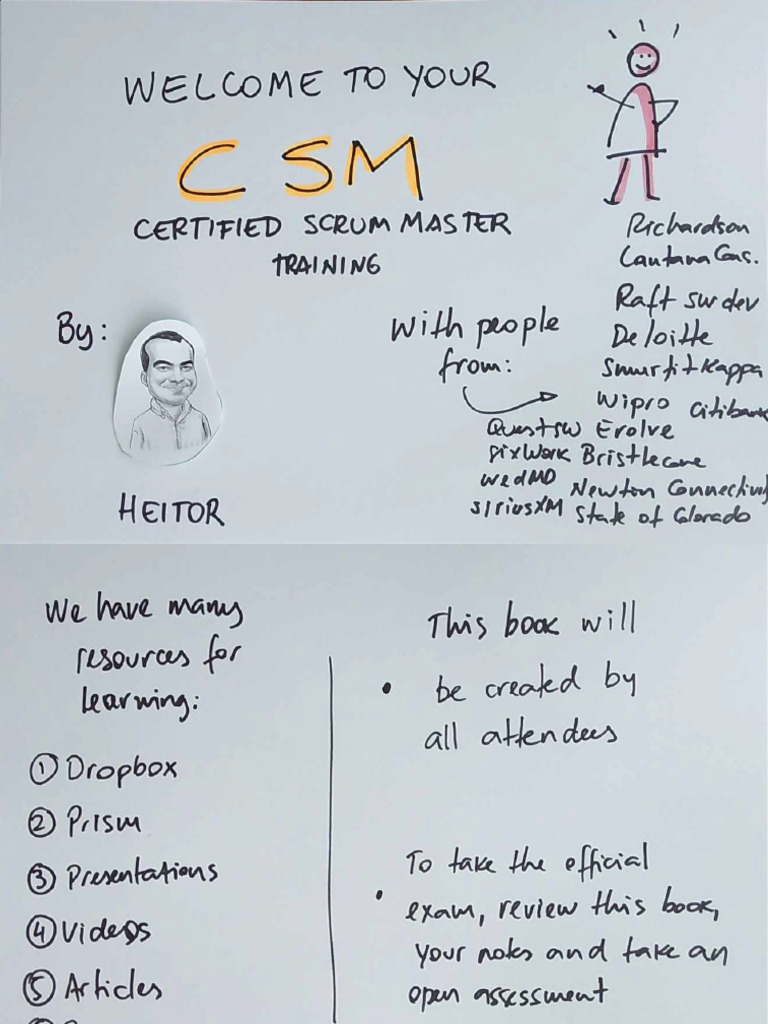 WELCOME TO YOUR
CSM
CERTIFIED SCRUM MASTER
TRAINING
By:
HEITOR
With people
from:
Richardson
Lantana Cons.
Raft sw dev
Deloitte
Smurfit Kappa
Wipro Citibank
Quest sw Erolve
Pixwork Bristlecone
wedMD Newton Connectivity
siriusXM State of Colorado
We have many
resources for
learning:
① Dropbox
② Prism
③ Presentations
④ Videos
⑤ Articles
This book will
• be created by
all attendees
To take the official
• exam, review this book,
your notes and take an
open assessment